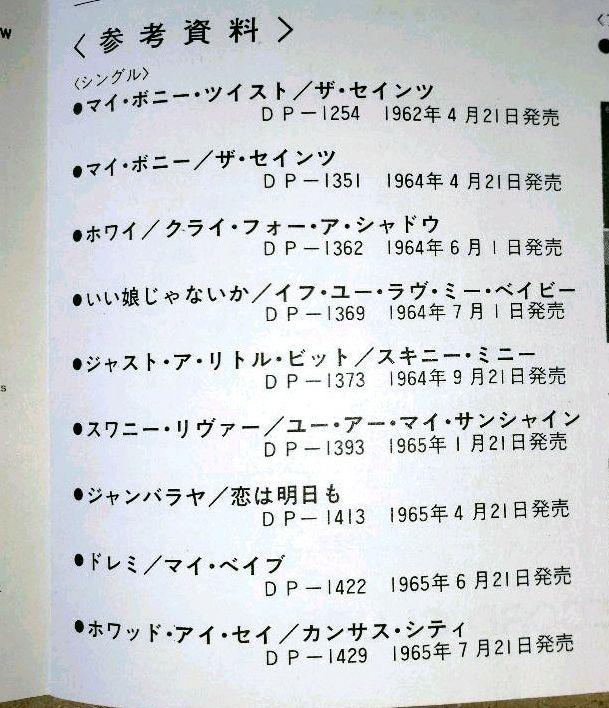 〈参考資料〉
〈シングル〉
●マイ・ボニー・ツイスト／ザ・セインツ
DP－1254 1962年4月21日発売
●マイ・ボニー／ザ・セインツ
DP－1351 1964年4月21日発売
●ホワイ／クライ・フォー・ア・シャドウ
DP－1362 1964年6月1日発売
●いい娘じゃないか／イフ・ユー・ラヴ・ミー・ベイビー
DP－1369 1964年7月1日発売
●ジャスト・ア・リトル・ビット／スキニー・ミニー
DP－1373 1964年9月21日発売
●スワニー・リヴァー／ユー・アー・マイ・サンシャイン
DP－1393 1965年1月21日発売
●ジャンバラヤ／恋は明日も
DP－1413 1965年4月21日発売
●ドレミ／マイ・ベイブ
DP－1422 1965年6月21日発売
●ホワッド・アイ・セイ／カンサス・シティ
DP－1429 1965年7月21日発売